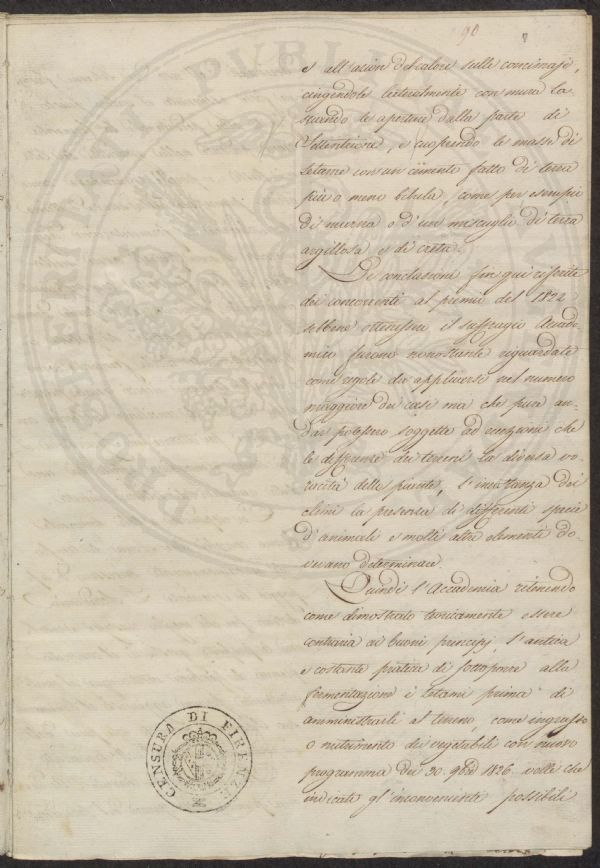 90
7
e all'azion del calore sulle concimaje,
cingendole lateralmente con mura la-
sciando le aperture dalla parte di
Settentrione, e cuoprendo le masse di
letame con un cimento fatto di terra
più o meno bibula, come per esempio
di murna o d'un miscuglio di terra
argillosa e di creta.
Le conclusioni fin qui riferite
dei concorrenti al premio del 1822
sebbene ottenessero il suffragio Accade-
mico furono nonostante riguardate
come regole da applicarsi nel numero
maggiore dei casi ma che pure an-
dar potessero soggette ad eccezioni che
le differenze dei terreni la diversa vo-
racità delle piante, l'incostanza dei
climi la presenza di differenti specie
d'animali e molti altri elementi do-
vevano determinare.
Quindi l'Accademia ritenendo
come dimostrato teoricamente essere
contraria ai buoni principj, l'antica
e costante pratica di sottoporre alla
fermentazione i letami prima di
amministrarli al terreno, come ingrasso
o nutrimento dei vegetabili con nuovo
programma dei 30. 9bre 1826 volle che
indicati gl'inconvenienti possibili
CENSURA DI FIRENZE
PROSPERITATI PUBLICAE